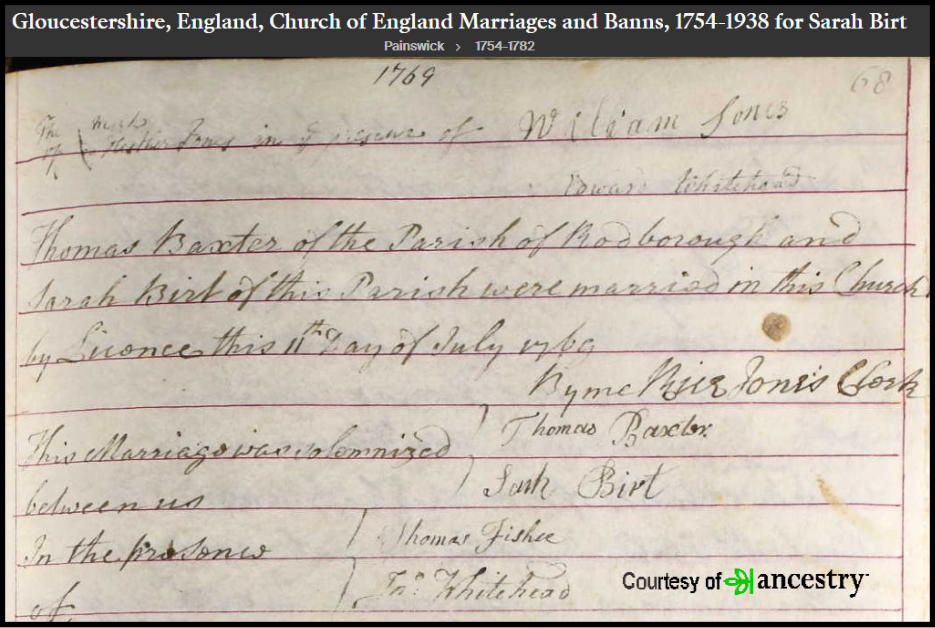 Gloucestershire, England, Church of England Marriages and Banns, 1754-1938 for Sarah Birt
Painswick › 1754-1782
1769
68
The mark
of Hesther Jones in ye presence of William Jones
Edward Whitehead
Thomas Baxter of the Parish of Rodborough and
Sarah Birt of this Parish were married in this Church
by Licence this 11th Day of July 1769
By me Rice Jones Clerk
This Marriage was solemnized Thomas Baxter
between us Sarh Birt
In the presence Thomas Fisher
of Jno. Whitehead
Courtesy of ancestry